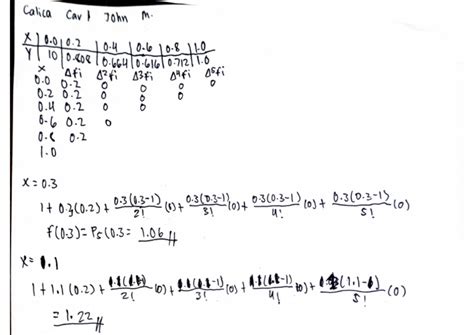 Calica Carl John M.
X | 0.0 | 0.2 | 0.4 | 0.6 | 0.8 | 1.0
Y | 10 | 0.808 | 0.664 | 0.616 | 0.712 | 1.0
x Δfi Δ²fi Δ³fi Δ⁴fi Δ⁵fi
0.0 0.2 0 0 0 0
0.2 0.2 0 0 0
0.4 0.2 0 0
0.6 0.2 0
0.8 0.2
1.0
X = 0.3
1 + 0.3(0.2) + 0.3(0.3-1)/2! (0) + 0.3(0.3-1)/3! (0) + 0.3(0.3-1)/4! (0) + 0.3(0.3-1)/5! (0)
f(0.3) = P5(0.3 = 1.06
X = 1.1
1 + 1.1(0.2) + /2! (0) + /3! (0) + /4! (0) + /5! (0)
= 1.22